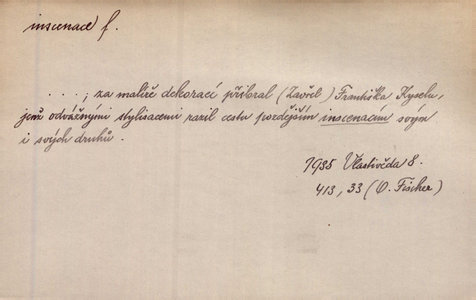 inscenace f.
. . . . ; za malíře dekorací přibral (Zavřel) Františka Kyselu,
jenž odvážnými stylisacemi razil cestu pozdějším inscenacím svým
i svých druhů.
1935 Vlastivěda 8.
413, 33 (O. Fischer)